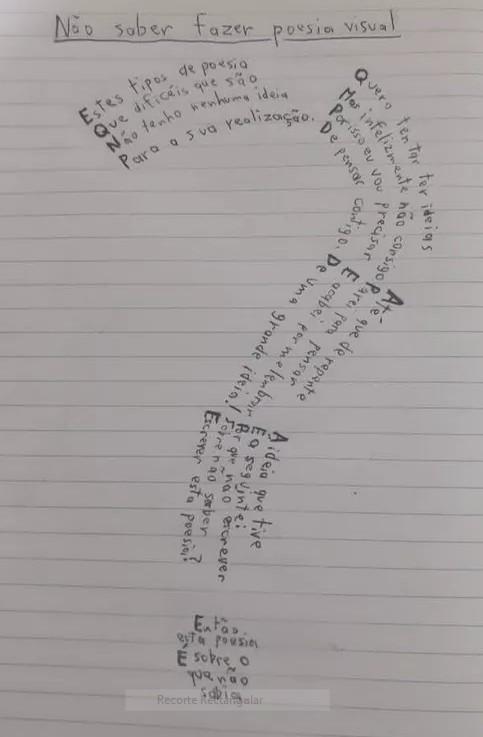 Não saber fazer poesia visual
Estes tipos de poesia
Que dificéis que são
Não tenho nenhuma ideia
Para a sua realização.
Quero tentar ter ideias
Mas infelizmente não consigo
Por isso eu vou precisar
De pensar contigo.
Até que de repente
Parei para pensar
E acabei por me lembrar
De uma grande ideia!
A ideia que tive
É a seguinte:
Por que não escrever
Sobre não saber
Escrever esta poesia?
Então
esta poesia
É sobre o
que não
sabia
Recorte Rectangular